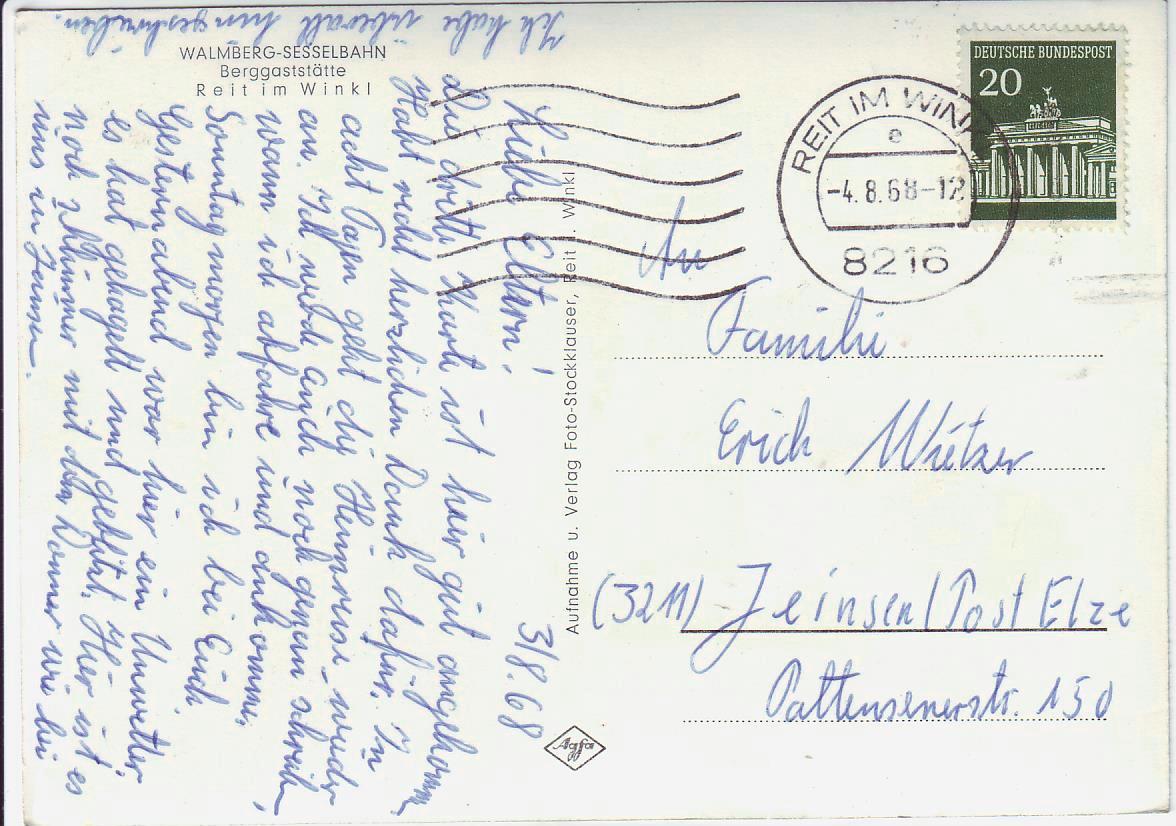 WALMBERG-SESSELBAHN
Berggaststätte
Reit im Winkl
3/8.68
Liebe Eltern!
die dritte Karte ist hier gut angekomm.
Habt recht herzlichen Dank dafür. In
acht Tagen geht die Heimreise wieder
an. Ich werde auch noch genau schreib.,
wann ich abfahre und ankomme.
Sonntagmorgen bin ich bei Euch.
Gesternabend war hier ein Unwetter
es hat gehagelt und geblitzt. Hier ist es
noch schlimmer mit dem Donner wie bei
uns in Jeinsen.
Ich habe überall hin geschrieben.
Aufnahme u. Verlag Foto-Stockklauser, Reit i. Winkl
Agfa
DEUTSCHE BUNDESPOST
20
REIT IM WINKL
e
-4.8.68-12
8216
An
Familie
Erich Wietzer
(3211) Jeinsen/Post Elze
Pattensenerstr. 150